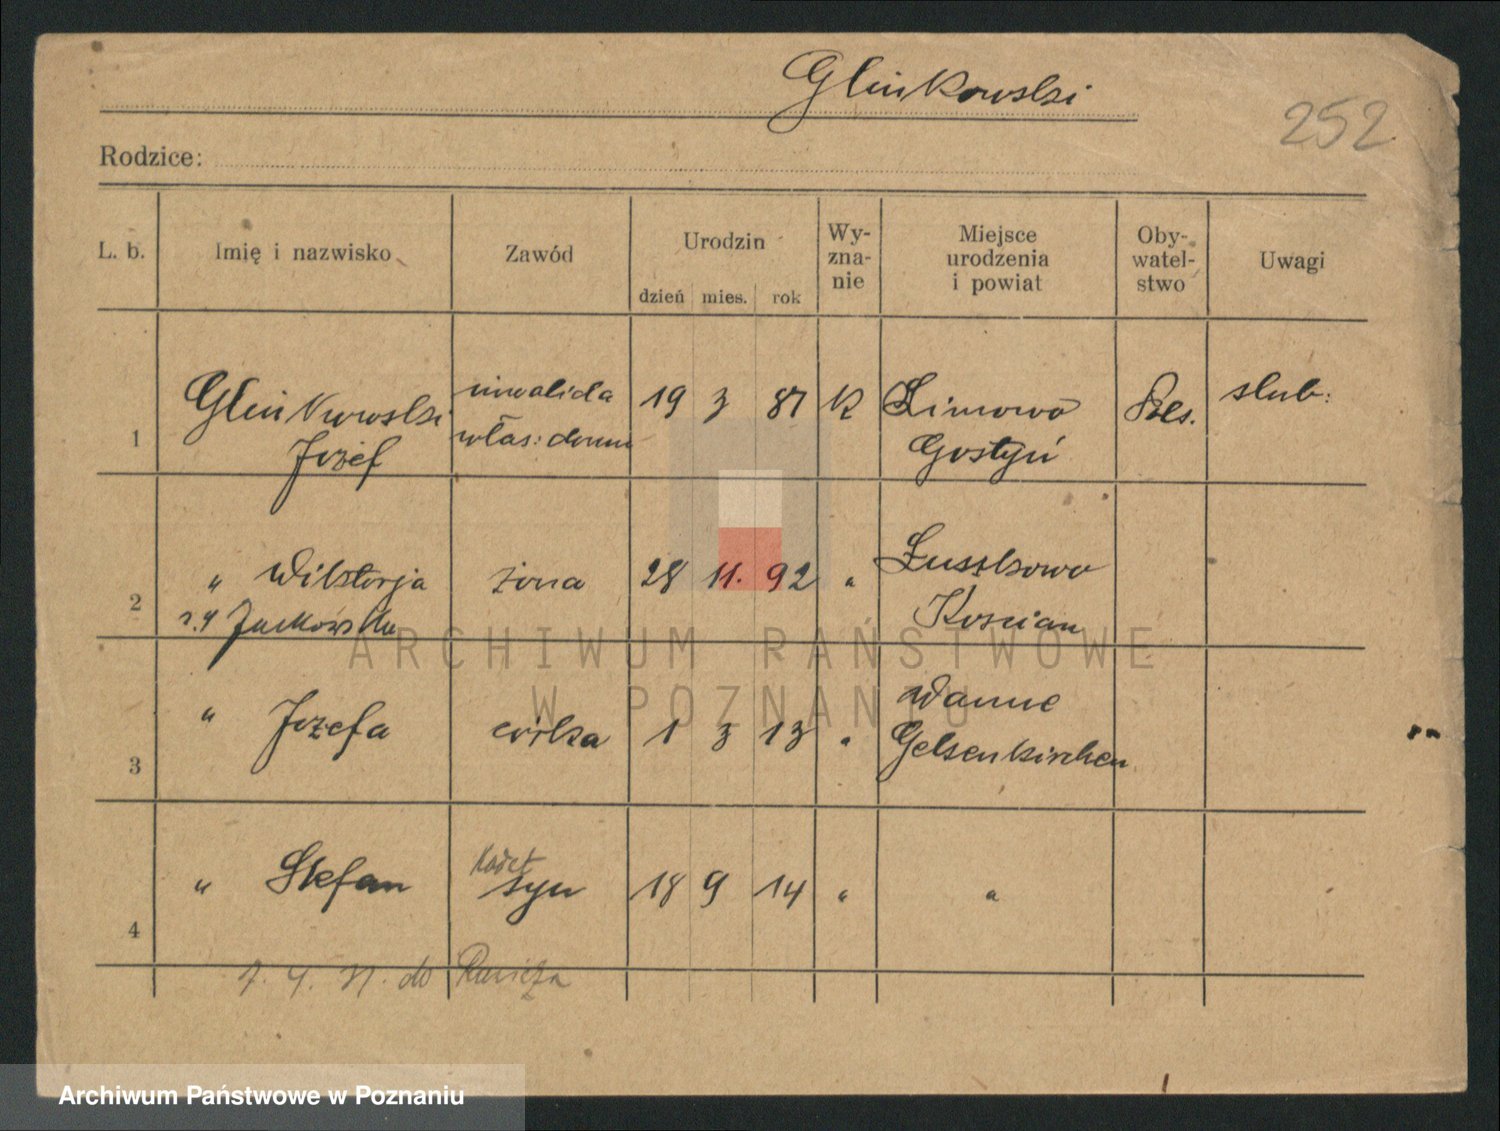 Glinkowski
252
Rodzice:
L. b. Imię i nazwisko Zawód Urodzin dzień mies. rok Wy-zna-nie Miejsce urodzenia i powiat Oby-watel-stwo Uwagi
1 Glinkowski Józef inwalida właś: domu 19 3 87 K Zimowo Gostyń Pols. slub:
2 " Wiktorja żona 28 11. 92 " Kościan
3 " Józefa córka 1 3 13 " Wanne Gelsenkirchen
4 " Stefan kadet syn 18 9 14 " "
7. 4. 31. do Rawicza
ARCHIWUM PAŃSTWOWE
W POZNANIU
Archiwum Państwowe w Poznaniu